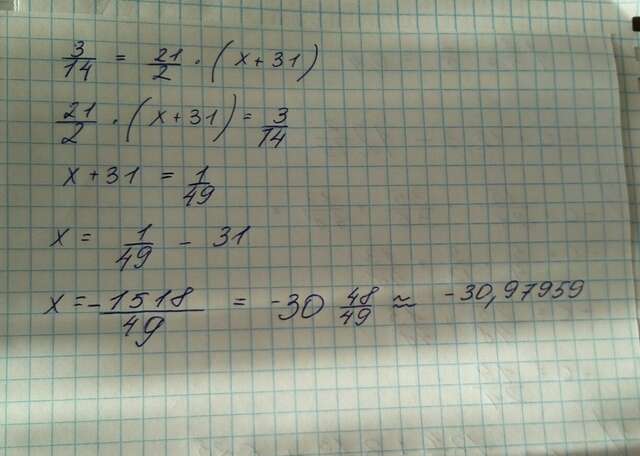 3/14 = 21/2 · (x + 31)
21/2 · (x + 31) = 3/14
x + 31 = 1/49
x = 1/49 - 31
x = -1518/49 = -30 48/49 ≈ -30,97959